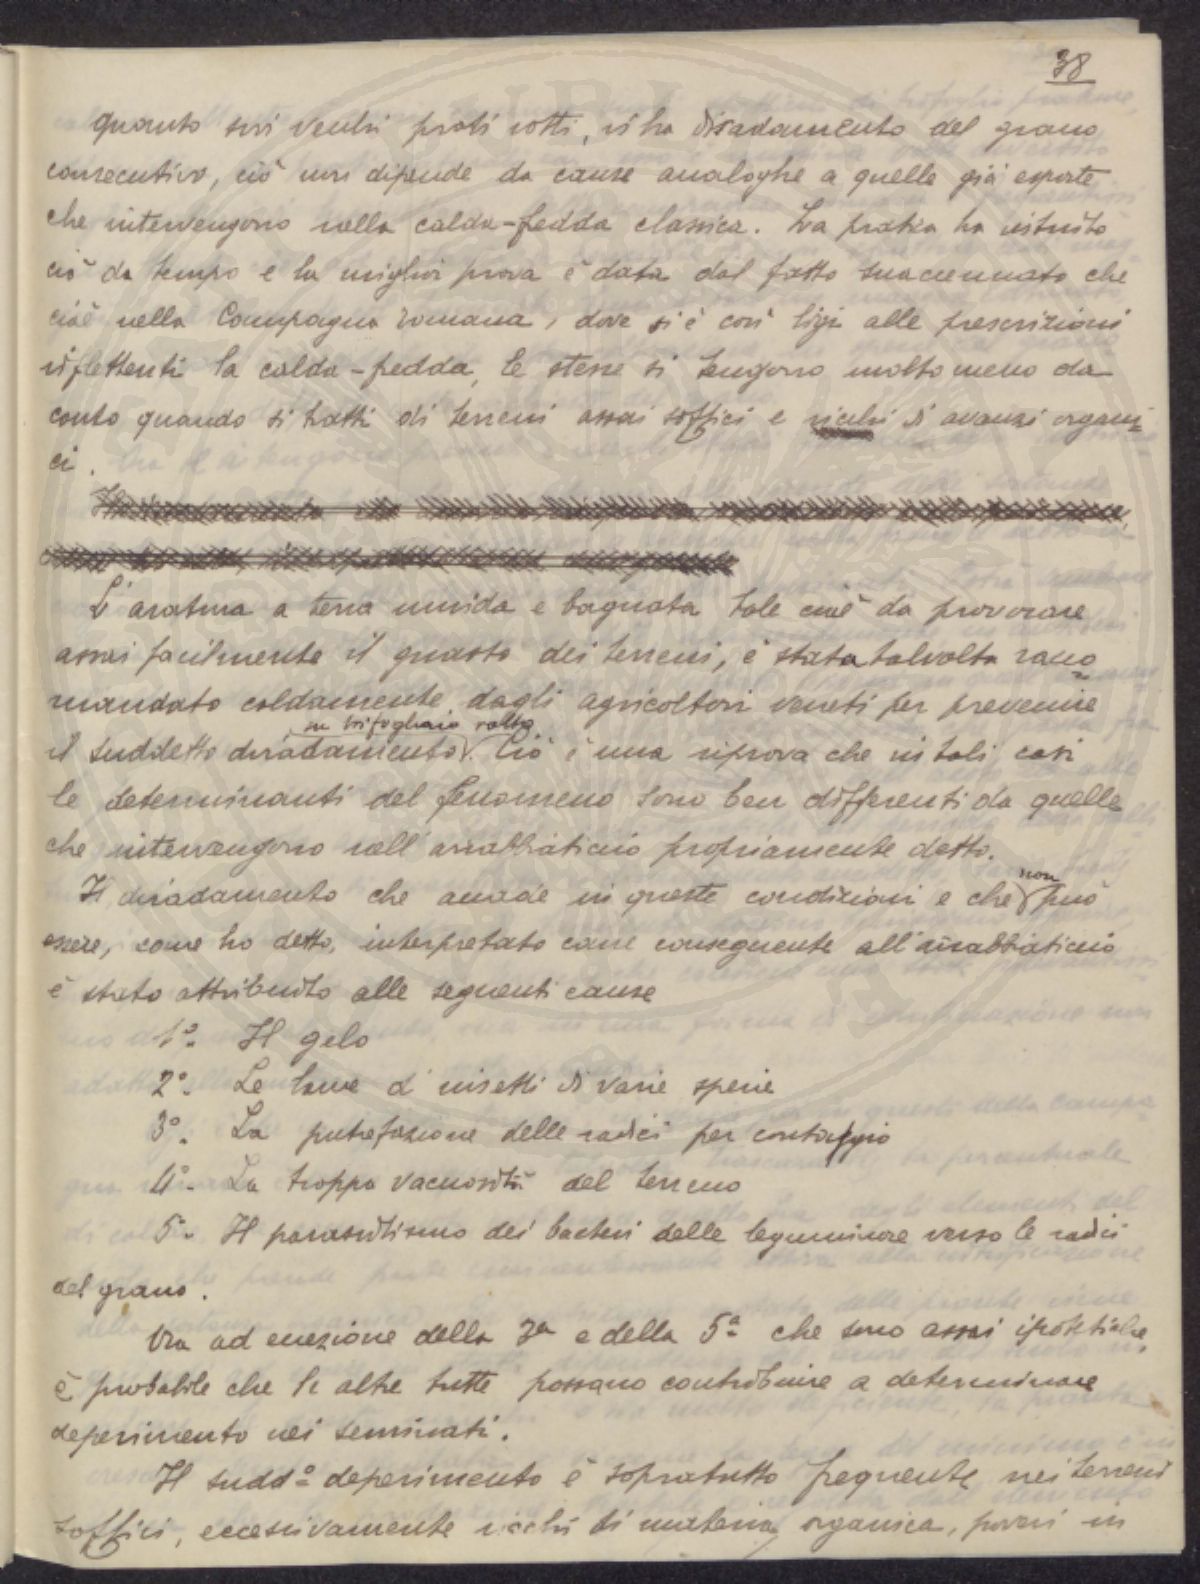 38
quanto sui vecchi prati rotti, vi ha diradamento del grano
consecutivo, ciò non dipende da cause analoghe a quelle già esposte
che intervengono nella calda-fredda classica. La pratica ha intuito
ciò da tempo e la miglior prova è data dal fatto suaccennato che
cioè nella Campagna romana, dove si è così ligi alle prescrizioni
riflettenti la calda-fredda, le stesse si tengono molto meno da
conto quando si tratti di terreni assai soffici e ricchi di avanzi organi-
ci.
L'aratura a terra umida e bagnata tale cioè da provocare
assai facilmente il guasto dei terreni, è stata talvolta racco
mandato caldamente dagli agricoltori veneti per prevenire
su trifogliaio rotto
il suddetto diradamento. Ciò è una riprova che in tali casi
le determinanti del fenomeno sono ben differenti da quelle
che intervengono nell'arrabbiaticcio propriamente detto.
non
Il diradamento che accade in queste condizioni e che può
essere, come ho detto, interpretato come conseguente all'arrabbiaticcio
è stato attribuito alle seguenti cause
1°. Il gelo
2°. Le larve d'insetti di varie specie
3°. La putrefazione delle radici per contaggio
4°. La troppa vacuosità del terreno
5°. Il parasitismo dei bacteri delle leguminose verso le radici
del grano.
Ora ad eccezione della 3a e della 5a che sono assai ipotetiche,
è probabile che le altre tutte possano contribuire a determinare
deperimento nei seminati.
Il sudd° deperimento è sopratutto frequente nei terreni
soffici, eccessivamente ricchi di materia organica, poveri in